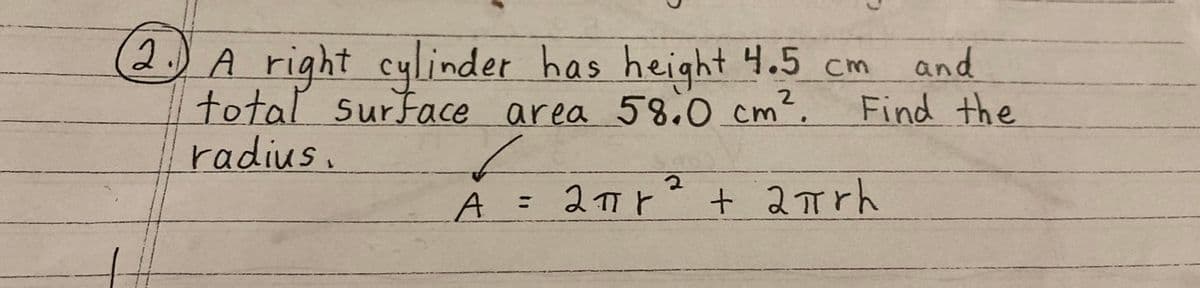 2.) A right cylinder has height 4.5 cm and
total surface area 58.0 cm². Find the
radius.
A = 2πr² + 2πrh